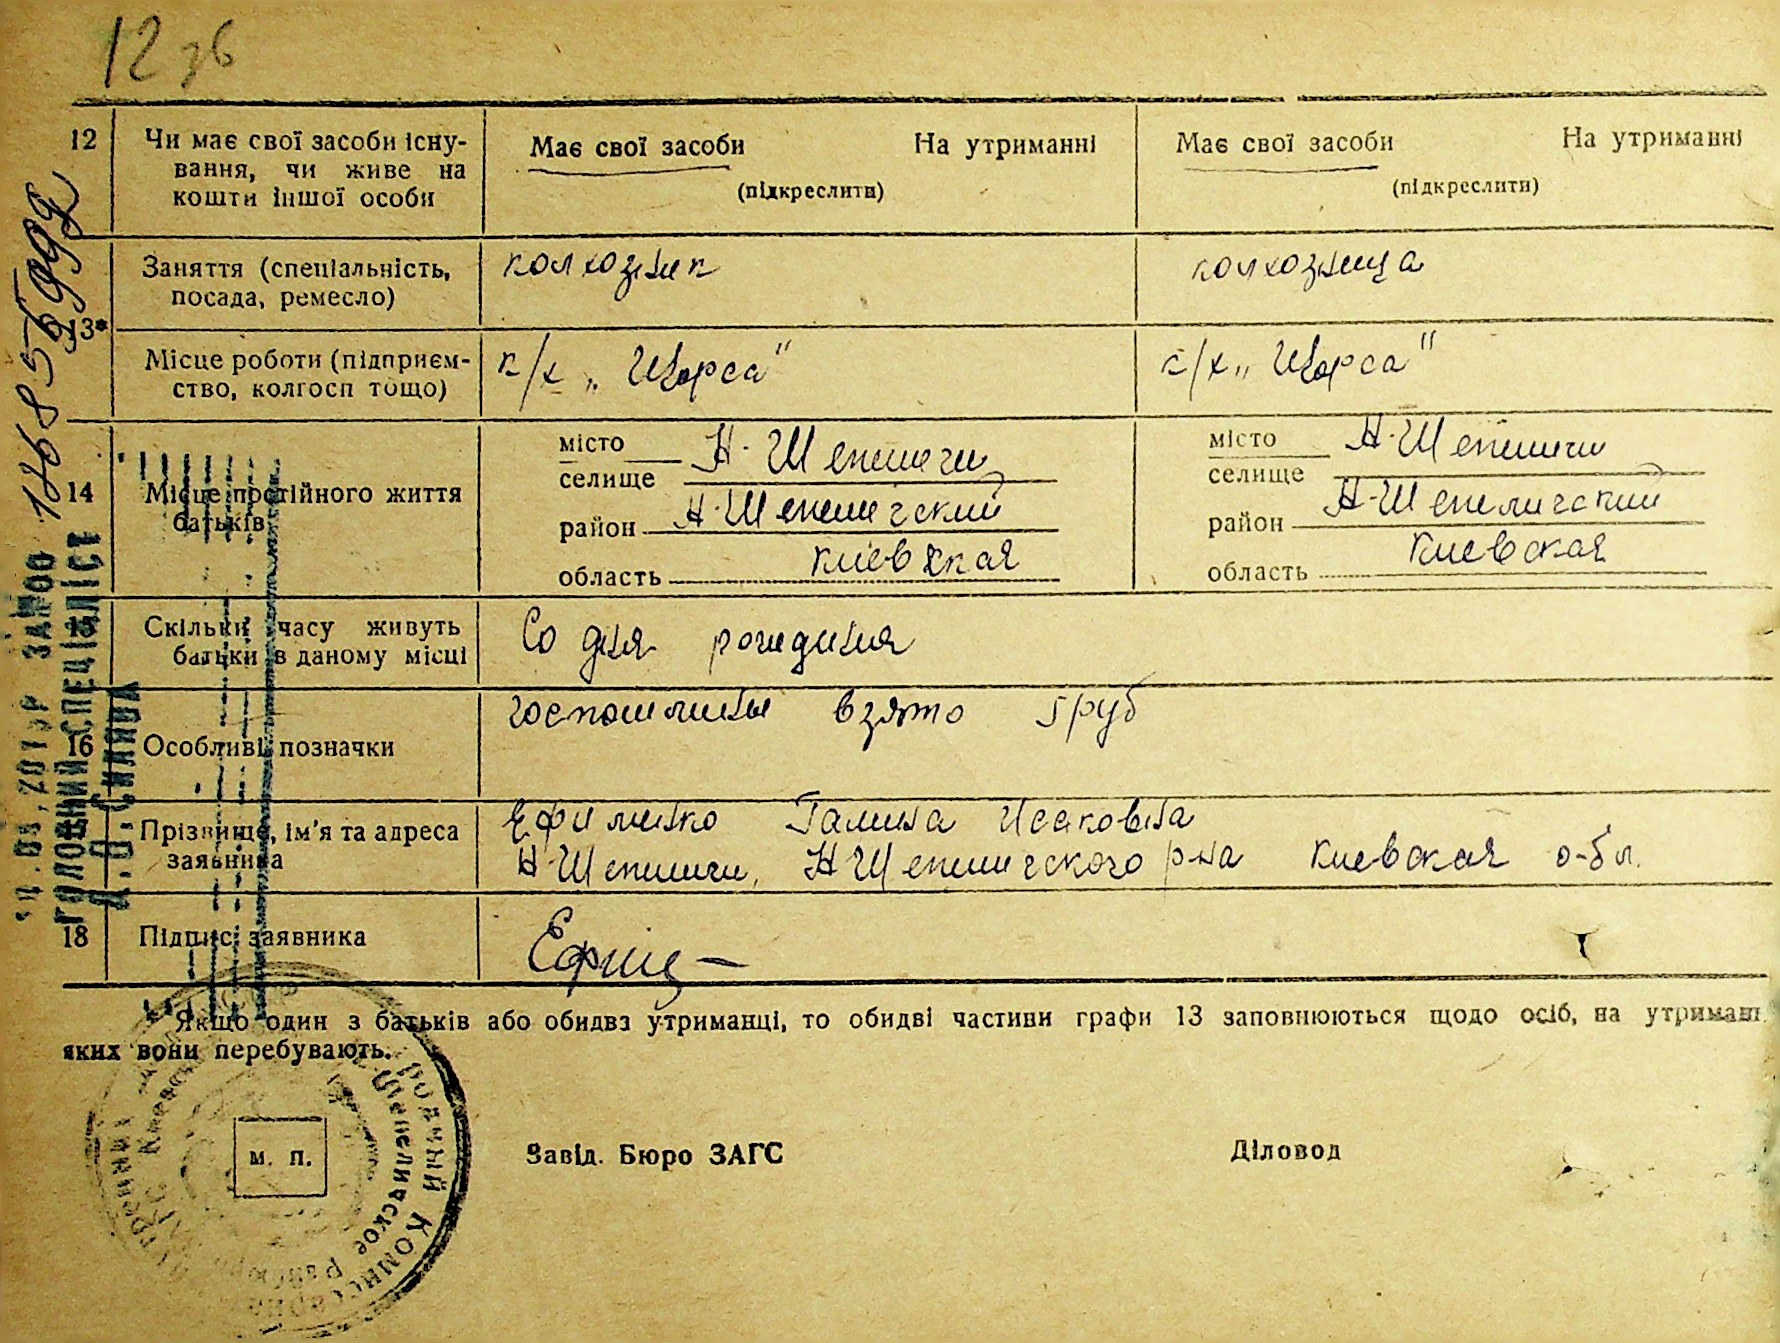 12 зв
12 Чи має свої засоби існу-
вання, чи живе на
кошти іншої особи
Має свої засоби На утриманні
(підкреслити)
Має свої засоби На утриманні
(підкреслити)
13*
Заняття (спеціальність,
посада, ремесло)
колхозник
колхозница
Місце роботи (підприєм-
ство, колгосп тощо)
к/х „Щорса"
к/х „Щорса"
14 Місце постійного життя
батьків
місто
селище
Н-Шепеличи
район Н-Шепеличский
область Киевская
місто
селище
Н-Шепеличи
район Н-Шепеличский
область Киевская
Скільки часу живуть
батьки в даному місці
Со дня рождения
16 Особливі позначки
госпошлины взято 5 руб
Прізвище, ім'я та адреса
заявника
Ефименко Галина Исаковна
Н-Шепеличи, Н-Шепеличского р-на Киевская о-бл.
18 Підпис заявника
* Якщо один з батьків або обидва утриманці, то обидві частини графи 13 заповнюються щодо осіб, на утриман
яких вони перебувають.
м. п.
Завід. Бюро ЗАГС
Діловод
ГОЛОВНИЙ СПЕЦІАЛІСТ
Шепеличское